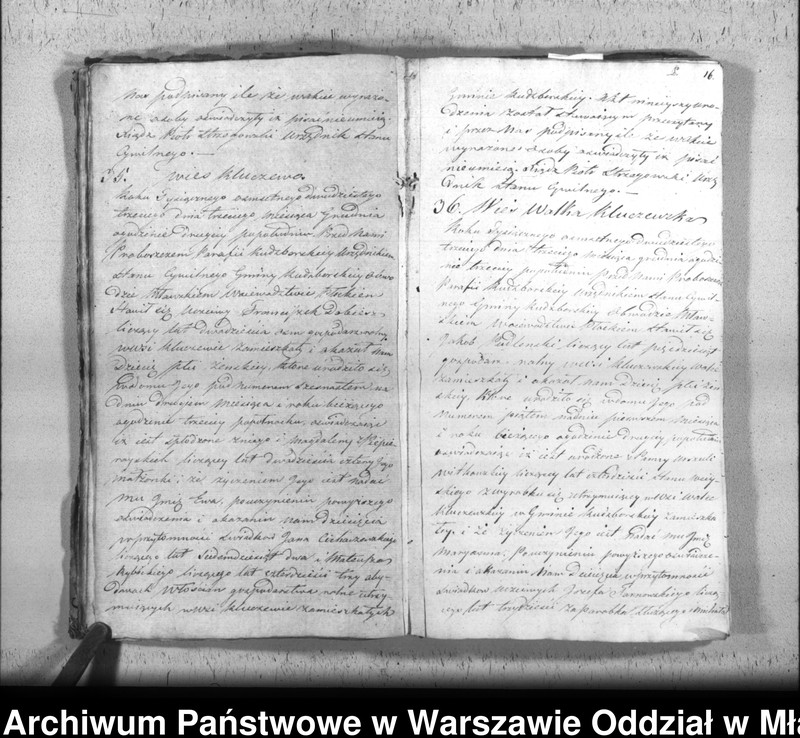 Nas podpisany ile że wskie wyrażo-
ne osoby oświadczyły iż pisać nieumieją.
Xiądz Piotr Strogowski Urzędnik Stanu
Cywilnego.—
35. Wieś Kluczewo
Roku Tysiącznego osmsetnego dwudziestego
trzeciego dnia trzeciego Miesiąca Grudnia
ogodzinie drugiey popołudniu Przed Nami
Proboszczem Parafii Kuczborskiey Urzędnikiem
Stanu Cywilnego Gminy Kuczborskiey obwo-
dzie Mławskiem Woiewodztwie Płockiem
Stawił się Uczciwy Franciszek
liczący lat dwadzieścia osm gospodarz rolny
wewsi Kluczewie zamieszkały i okazał Nam
Dziecię płci żenskiey, które urodziło się
wdomu Jego pod numerem szesnastem na
dniu Miesiąca i roku bieżącego
ogodzinie trzeciey popołudniu, oświadczaiąc
iż iest spłodzone zniego i Magdaleny z
liczącey lat dwadzieścia cztery Jego
małżonki: i że życzeniem Jego iest nadać
mu Jmię Ewa, pouczynieniu powyższego
oświadczenia i okazaniu nam dziecięcia
wprzytomności Swiadków Jana Cichowskiego
liczącego lat Siedmdziesiąt dwa i Mateusza
Rybińskiego liczącego lat czterdzieści trzy oby-
dwóch Włoscian gospodarstwa rolne utrzy-
muiących wewsi Kluczewie zamieszkałych
16
Gminie Kuczborskiey. Akt ninieyszy uro-
dzenia został Stawaiącym przeczytany
i przez Nas Podpisany ile że wskie
wyrażone osoby oświadczyły iż pisać
nieumieią. Xiądz Piotr Strogowski Urzę-
dnik Stanu Cywilnego.—
36. Wieś Wolka Kluczewska
Roku Tysiącznego osmsetnego dwudziestego
trzeciego dnia trzeciego Miesiąca grudnia ogodzi-
nie trzeciey popołudniu Przed Nami Proboszczem
Parafii Kuczborskiey Urzędnikiem Stanu Cywil-
nego Gminy Kuczborskiey obwodzie Mław-
skiem Woiewodztwie Płockiem Stawił się
Jakób liczący lat pięćdziesiąt
gospodarz rolny wewsi Kluczewskiey Wolce
zamieszkały i okazał nam dziecię płci żen-
skiey, które urodziło się wdomu Jego pod
numerem piątem nadniu pierwszem Miesiąca
i roku bieżącego ogodzinie drugiey zpołudnia
oświadczaiąc iż iest zrodzone z Panny Urszuli
Witkowskiey liczącey lat czterdzieści stanu wiey-
skiego zwyrobku się utrzymuiącey wewsi Wolce
Kluczewskiey w Gminie Kuczborskiey zamieszka-
łey, i że życzeniem Jego iest nadać mu Jmię
Maryanna; Pouczynieniu powyższego oświadcze-
nia i okazaniu Nam Dziecięcia wprzytomności
Swiadków Uczciwych Józefa Tarnowskiego liczą-
cego lat trzydzieści zaparobka Służącego
Archiwum Państwowe w Warszawie Oddział w Mł